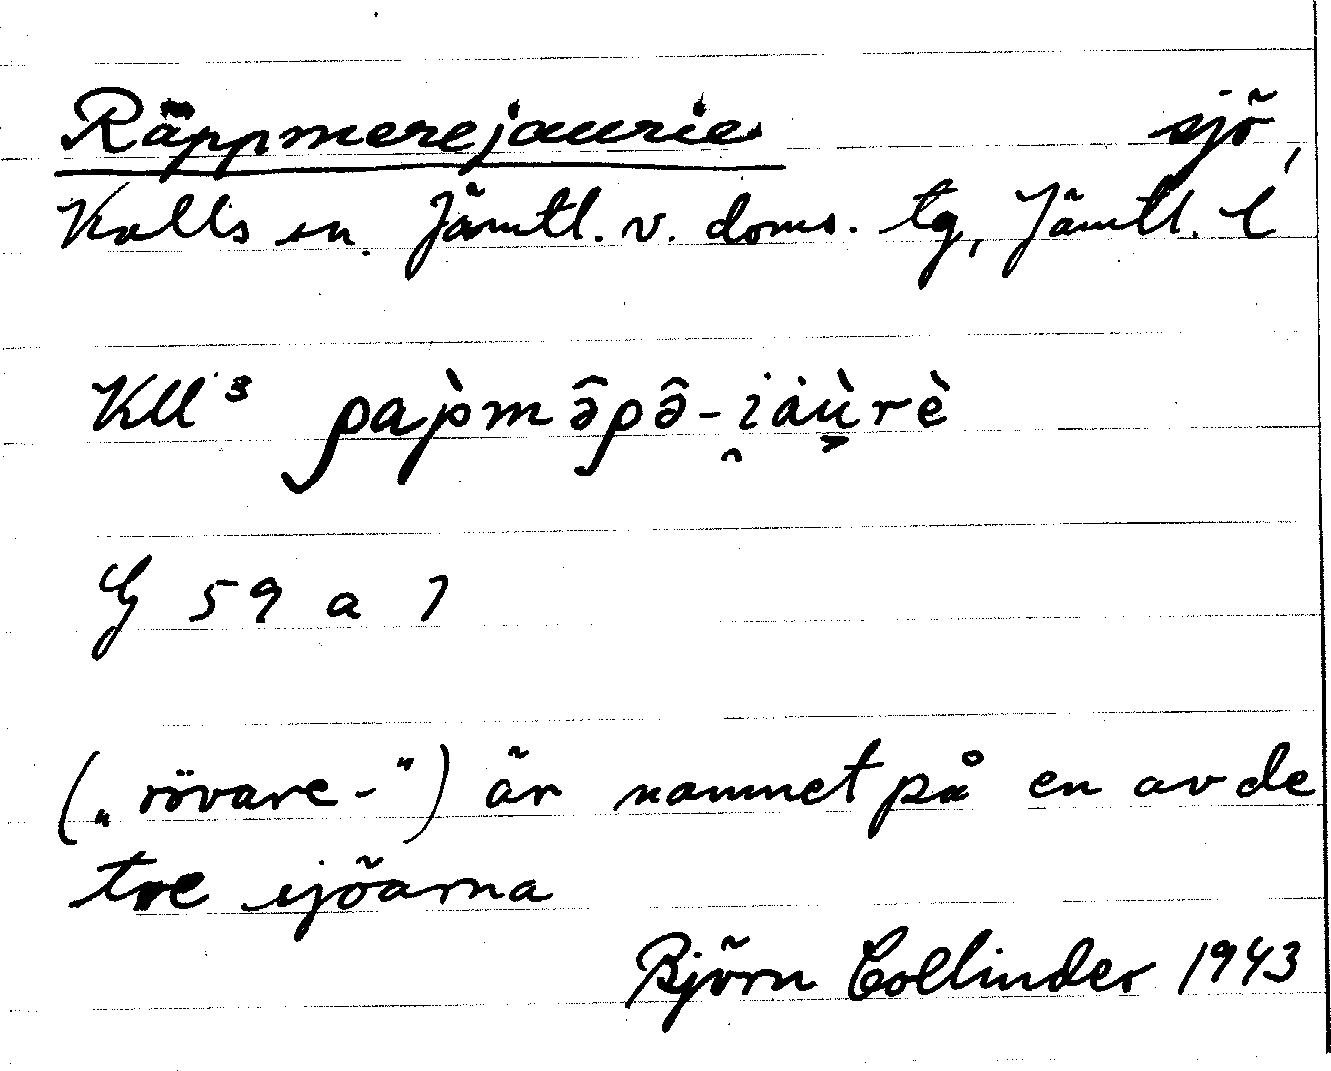 Räppmerejaurie sjö,
Kalls sn. Jämtl. v. doms. tg, Jämtl. l
Kll³ ρap̀mə̑ρə̑-i̯ȧu̖̇rè
G 59 a 7
(„rövare-") är namnet på en av de
tre sjöarna
Björn Collinder 1943